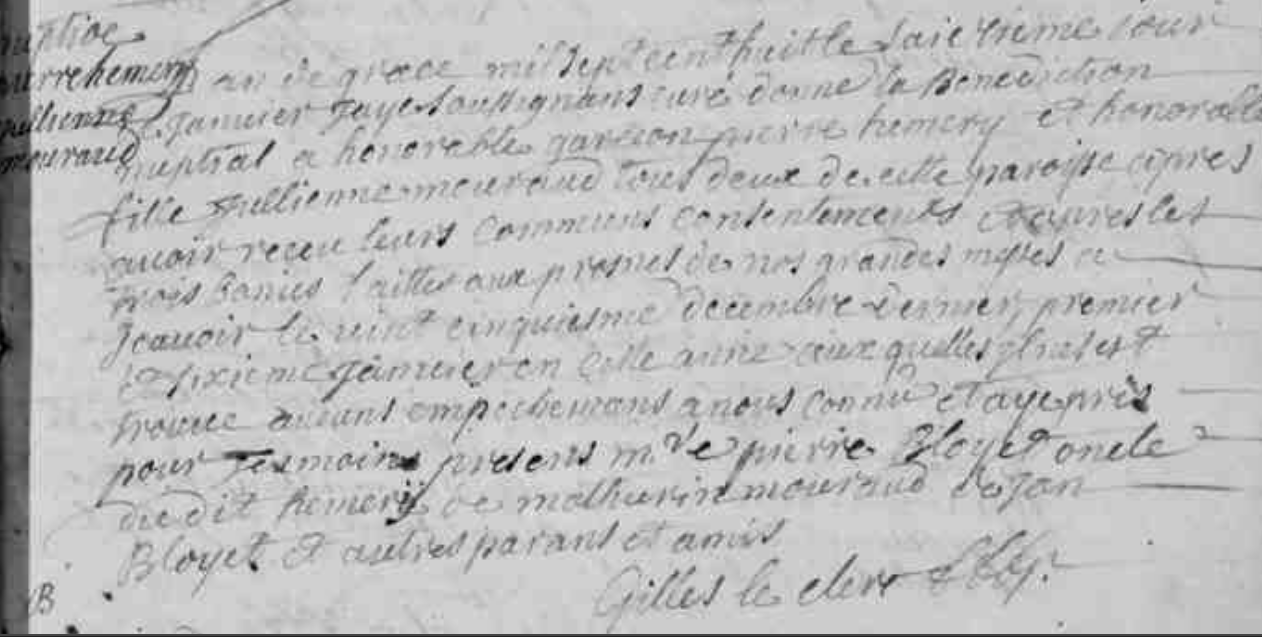 nuptiae
pierre hemery
jullienne
mouraud
an de grace mil sept cent huit le saiezieme jour
de janvier jaye soussignans curé donné la Benediction
nuptial a honorable garcon pierre hemery et honorable
fille jullienne mouraud tous deux de cette paroisse apres
avoir receu leurs communs consentements et apres les
trois banies faittes aux prosnes de nos grandes messes a
scavoir le vint cinquiesme decembre dernier, premier
et sixieme janvier en cette anné aux quelles s'est
trouvee aucuns empechemans a nous connu et aye pris
pour tesmoins presens pierre Bloyet oncle
du dit hemery de mathurin mouraud de jan
Bloyet et autres parans et amis
Gilles le clerc
B